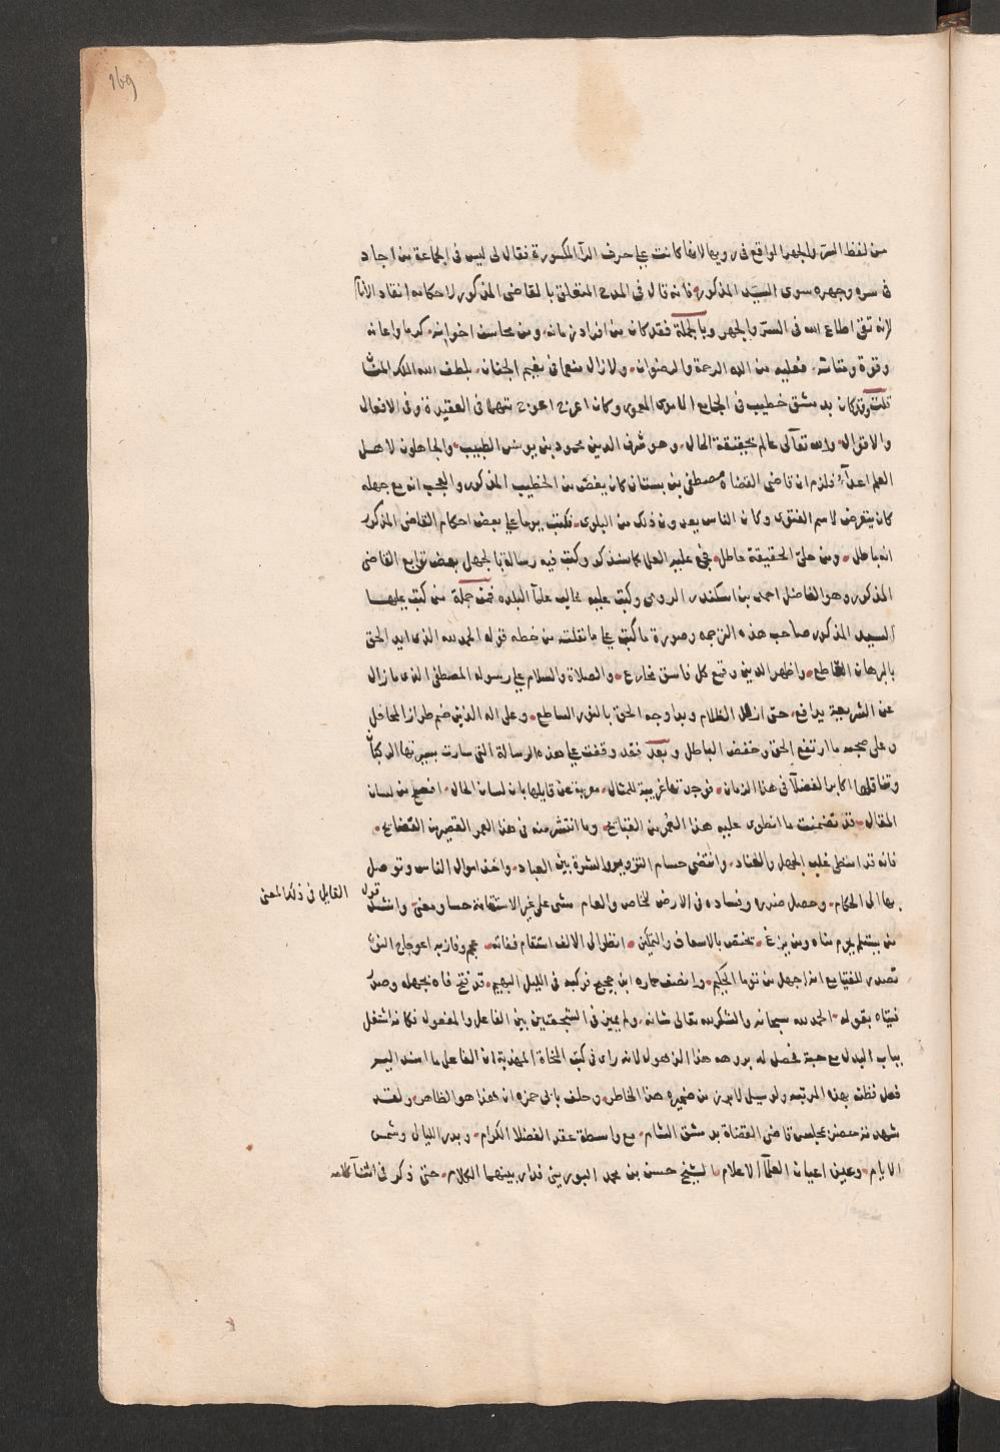 169
من لفظ السر والجهر الواقع في رويها لانها كانت على حرف الرآ المكسورة فقال لى ليس في الجماعة من اجاد
في سره وجهره سوى السيد المذكور فانه قال في المدح المتعلق بالقاضى المذكور لاحكامه انقاد الانام
لانه تقى اطاع الله في السر والجهر وبالجملة فقد كان من افراد زمانه ومن محاسن اخوانه كرما واعانه
وقوة ومتانة فعليه من الله الرحمة والرضوان ولازال منعما في نعيم الجنان بلطف الله الملك المنان
قلت وقد كان بدمشق خطيب في الجامع الاموى المعمور وكان اعرج اعوج متهما في العقيدة وفي الافعال
والاقوال والله تعالى عالم بحقيقة الحال وهو شرف الدين محمود بن يونس الطبيب والجاهلون لاهل
العلم اعدآء فلزم ان قاضى القضاة مصطفى بن بستان كان يغض من الخطيب المذكور والعجب انه مع جهله
كان يتعرض لاسم الفتوى وكان الناس يعدون ذلك من البلوى فكتب يوما على بعض احكام القاضى المذكور
انه باطل ومن حلى الحقيقة عاطل عليه العلما كما سنذكر وكتب فيه رسالة بالجهل بعض توابع القاضى
المذكور وهو الفاضل احمد بن اسكندر الرومى وكتب عليه غالب علمآ البلده فمن جملة من كتب عليها
السيد المذكور صاحب هذه الترجمه وصورة ما كتب على ما نقلت من خطه قوله الحمد لله الذى ايد الحق
بالبرهان القاطع واظهر الدين وقمع كل فاسق مخادع والصلاة والسلام على رسوله المصطفى الذى مازال
عن الشريعة يدافع حتى ازهل الظلام وبدا وجه الحق بالنور الساطع وعلى اله الذين هم طراز المحافل
وعلى صحبه ما ارتفع الحق وخفض الباطل وبعد فقد وقفت على هذه الرسالة التى سارت بسيرتها الركبان
وتناقلها اكابر الفضلآ في هذا الزمان فوجدتها غريبة المثال معربة عن قايلها بان لسان الحال افصح من لسان
المقال قد تضمنت ما انطوى عليه هذا الغمر من القبايح وما انتشر منه في هذا العمر القصير من الفضايح
فانه قد امتطى غلب الجهل والعناد وانتضى حسام التزوير والشرة بين العباد واخذ اموال الناس وتوصل
بها الى الحكام وحصل ضرره وفساده في الارض للخاص والعام مشى على غير الاستقامة حسا ومعنى وانشد قول القايل في ذلك المعنى
من يستقم يحرم مناه ومن يزغ يختص بالاسعاف والتمكين انظر الى الالف استقام ففاته عجم وفاز به اعوجاج النون
تصدر للفتيا مع انه اجهل من توما الحكيم ولو انصف حماره ابن لركبه في الليل البهيم قد فتح فاه بجهله وصدر
فتياه بقوله الحمد لله سبحانه والشكر لله تعالى شانه ولم يميز في السجعتين بين الفاعل والمفعول فكانه اشتغل
بباب البدل مع حبة فحصل له بورهه هذا الذهول لانه راى في كتب النحاة المهذبة ان الفاعل ما اسند اليه
فعل فظن بهذه المرتبه ولو سيل لابرز من ضميره هذا الخاطر وحلف بابى حمزه ان هذا هو الظاهر ولقد
شهدته حضر بمجلس قاضى القضاة بدمشق الشام مع واسطة عقد الفضلا الكرام وبدر الليالى وشمس
الايام وعين اعيان العلمآ الاعلام الشيخ حسن بن محمد البورينى فدار بينهما الكلام حتى ذكر في اثنآ كلامه